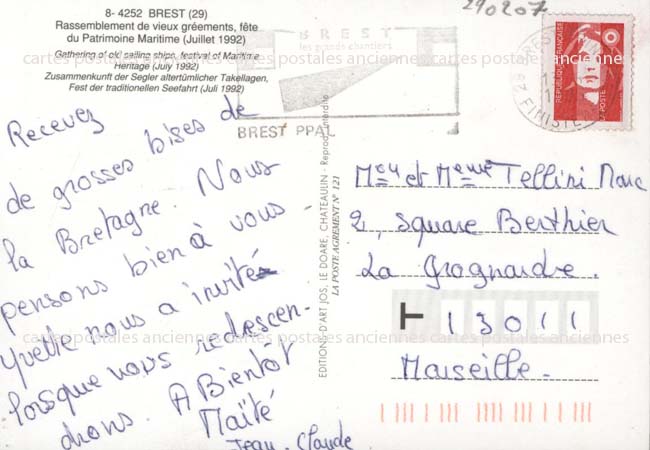 8- 4252 BREST (29)
Rassemblement de vieux gréements, fête
du Patrimoine Maritime (Juillet 1992)
Gathering of old sailing ships, festival of Maritime
Heritage (July 1992)
Zusammenkunft der Segler altertümlicher Takellagen,
Fest der traditionellen Seefahrt (Juli 1992)
290207
BREST
les grands chantiers
BREST PPAL
29 BREST
FINISTE
REPUBLIQUE FRANÇAISE
LA POSTE
cartes postales anciennes cartes postales anciennes cartes postales anciennes
Recevez
de grosses bises de
la Bretagne. Nous
pensons bien à vous.
Yvette nous a invité
lorsque nous redescen-
drons. A Bientôt
Maïté
Jean-Claude
EDITIONS D'ART JOS, LE DOARE, CHATEAULIN - Reprod. interdite
LA POSTE AGREMENT N° 121
Mr et Mme Tellini Marc
2, square Berthier
La Grognarde.
13011
Marseille.
cartes postales anciennes cartes postales anciennes cartes postales anciennes